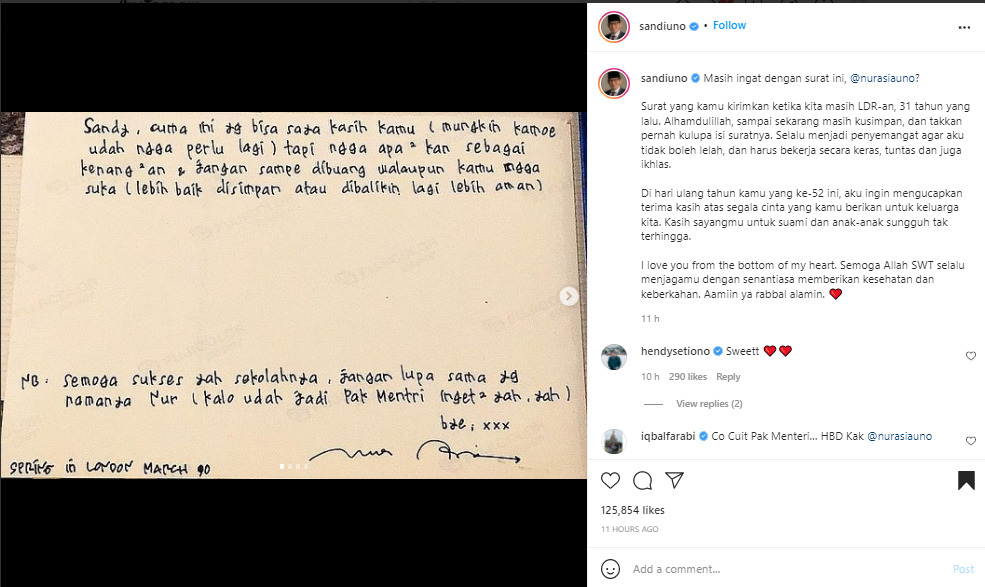 Sandy, cuma ini yg bisa saya kasih kamu (mungkin kamoe
udah ngga perlu lagi) tapi ngga apa² kan sebagai
kenang²an & jangan sampe dibuang walaupun kamu ngga
suka (lebih baik disimpan atau dibalikin lagi lebih aman)
NB: semoga sukses yah sekolahnya, jangan lupa sama yg
namanya Nur (kalo udah jadi Pak Mentri inget² yah, yah)
bye, xxx
SPRING in LONDON MARCH 90
sandiuno • Follow
sandiuno Masih ingat dengan surat ini, @nurasiauno?
Surat yang kamu kirimkan ketika kita masih LDR-an, 31 tahun yang
lalu. Alhamdulillah, sampai sekarang masih kusimpan, dan takkan
pernah kulupa isi suratnya. Selalu menjadi penyemangat agar aku
tidak boleh lelah, dan harus bekerja secara keras, tuntas dan juga
ikhlas.
Di hari ulang tahun kamu yang ke-52 ini, aku ingin mengucapkan
terima kasih atas segala cinta yang kamu berikan untuk keluarga
kita. Kasih sayangmu untuk suami dan anak-anak sungguh tak
terhingga.
I love you from the bottom of my heart. Semoga Allah SWT selalu
menjagamu dengan senantiasa memberikan kesehatan dan
keberkahan. Aamiin ya rabbal alamin. ❤️
11 h
hendysetiono Sweett ❤️❤️
10 h 290 likes Reply
View replies (2)
iqbalfarabi Co Cuit Pak Menteri... HBD Kak @nurasiauno
125,854 likes
11 HOURS AGO
Add a comment... Post